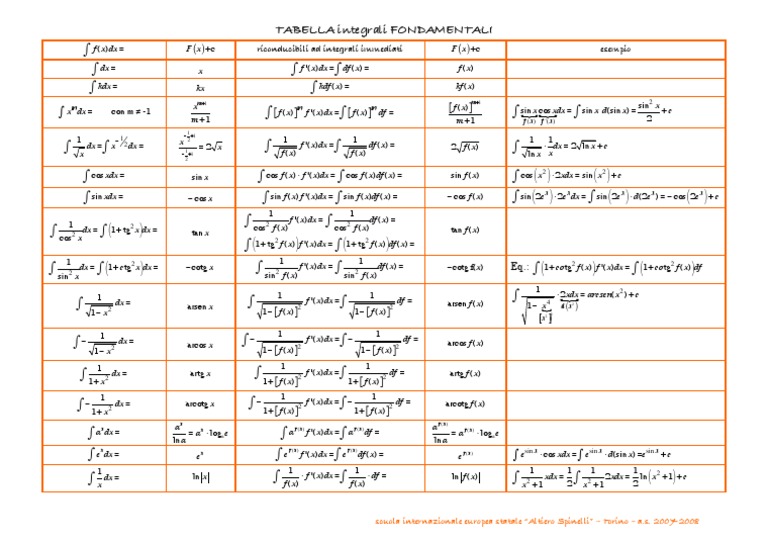 TABELLA integrali FONDAMENTALI
∫ f(x)dx = F(x)+c riconducibili ad integrali immediati F(x)+c esempio
∫ dx = x ∫ f'(x)dx = ∫ df(x) = f(x)
∫ kdx = kx ∫ kdf(x) = kf(x)
∫ x^m dx = con m ≠ -1 x^(m+1)/(m+1) ∫ [f(x)]^m f'(x)dx = ∫ [f(x)]^m df = [f(x)]^(m+1)/(m+1) ∫ sin x cos x dx = ∫ sin x d(sin x) = sin² x/2 + c
f(x) f'(x)
∫ 1/√x dx = ∫ x^(-1/2) dx = x^(-1/2+1)/(-1/2+1) = 2√x ∫ 1/√f(x) f'(x)dx = ∫ 1/√f(x) df(x) = 2√f(x) ∫ 1/√ln x · 1/x dx = 2√ln x + c
∫ cos xdx = sin x ∫ cos f(x) · f'(x)dx = ∫ cos f(x)df(x) = sin f(x) ∫ cos(x²) · 2xdx = sin(x²) + c
∫ sin xdx = – cos x ∫ sin f(x) f'(x)dx = ∫ sin f(x)df(x) = – cos f(x) ∫ sin(2e³) · 2e³dx = ∫ sin(2e³) · d(2e³) = – cos(2e³) + c
∫ 1/cos² x dx = ∫ (1+tg² x)dx = tan x ∫ 1/cos² f(x) f'(x)dx = ∫ 1/cos² f(x) df(x) = tan f(x)
∫ (1+tg² f(x))f'(x)dx = ∫ (1+tg² f(x))df(x) =
∫ 1/sin² x dx = ∫ (1+ctg² x)dx = –cotg x ∫ 1/sin² f(x) f'(x)dx = ∫ 1/sin² f(x) df(x) = –cotg f(x) Eq.: ∫ (1+cotg² f(x))f'(x)dx = ∫ (1+cotg² f(x))df
∫ 1/√(1– x²) dx = arsen x ∫ 1/√(1–[f(x)]²) f'(x)dx = ∫ 1/√(1–[f(x)]²) df = arsen f(x) ∫ 1/√(1– x⁴) · 2xdx = arcsen(x²) + c
∫ – 1/√(1– x²) dx = arcos x ∫ – 1/√(1–[f(x)]²) f'(x)dx = ∫ – 1/√(1–[f(x)]²) df = arcos f(x)
∫ 1/(1+ x²) dx = artg x ∫ 1/(1+[f(x)]²) f'(x)dx = ∫ 1/(1+[f(x)]²) df = artg f(x)
∫ – 1/(1+ x²) dx = arcotg x ∫ – 1/(1+[f(x)]²) f'(x)dx = ∫ – 1/(1+[f(x)]²) df = arcotg f(x)
∫ a^x dx = a^x/ln a = a^x · log_a e ∫ a^f(x) f'(x)dx = ∫ a^f(x) df = a^f(x)/ln a = a^f(x) · log_a e
∫ e^x dx = e^x ∫ e^f(x) f'(x)dx = ∫ e^f(x) df(x) = e^f(x) ∫ e^(sin x) · cos xdx = ∫ e^(sin x) · d(sin x) = e^(sin x) + c
∫ 1/x dx = ln|x| ∫ 1/f(x) · f'(x)dx = ∫ 1/f(x) · df = ln|f(x)| ∫ 1/(x²+1) xdx = 1/2 ∫ 1/(x²+1) 2xdx = 1/2 ln(x²+1) + c
scuola internazionale europea statale "Altiero Spinelli" – Torino – a.s. 2007-2008